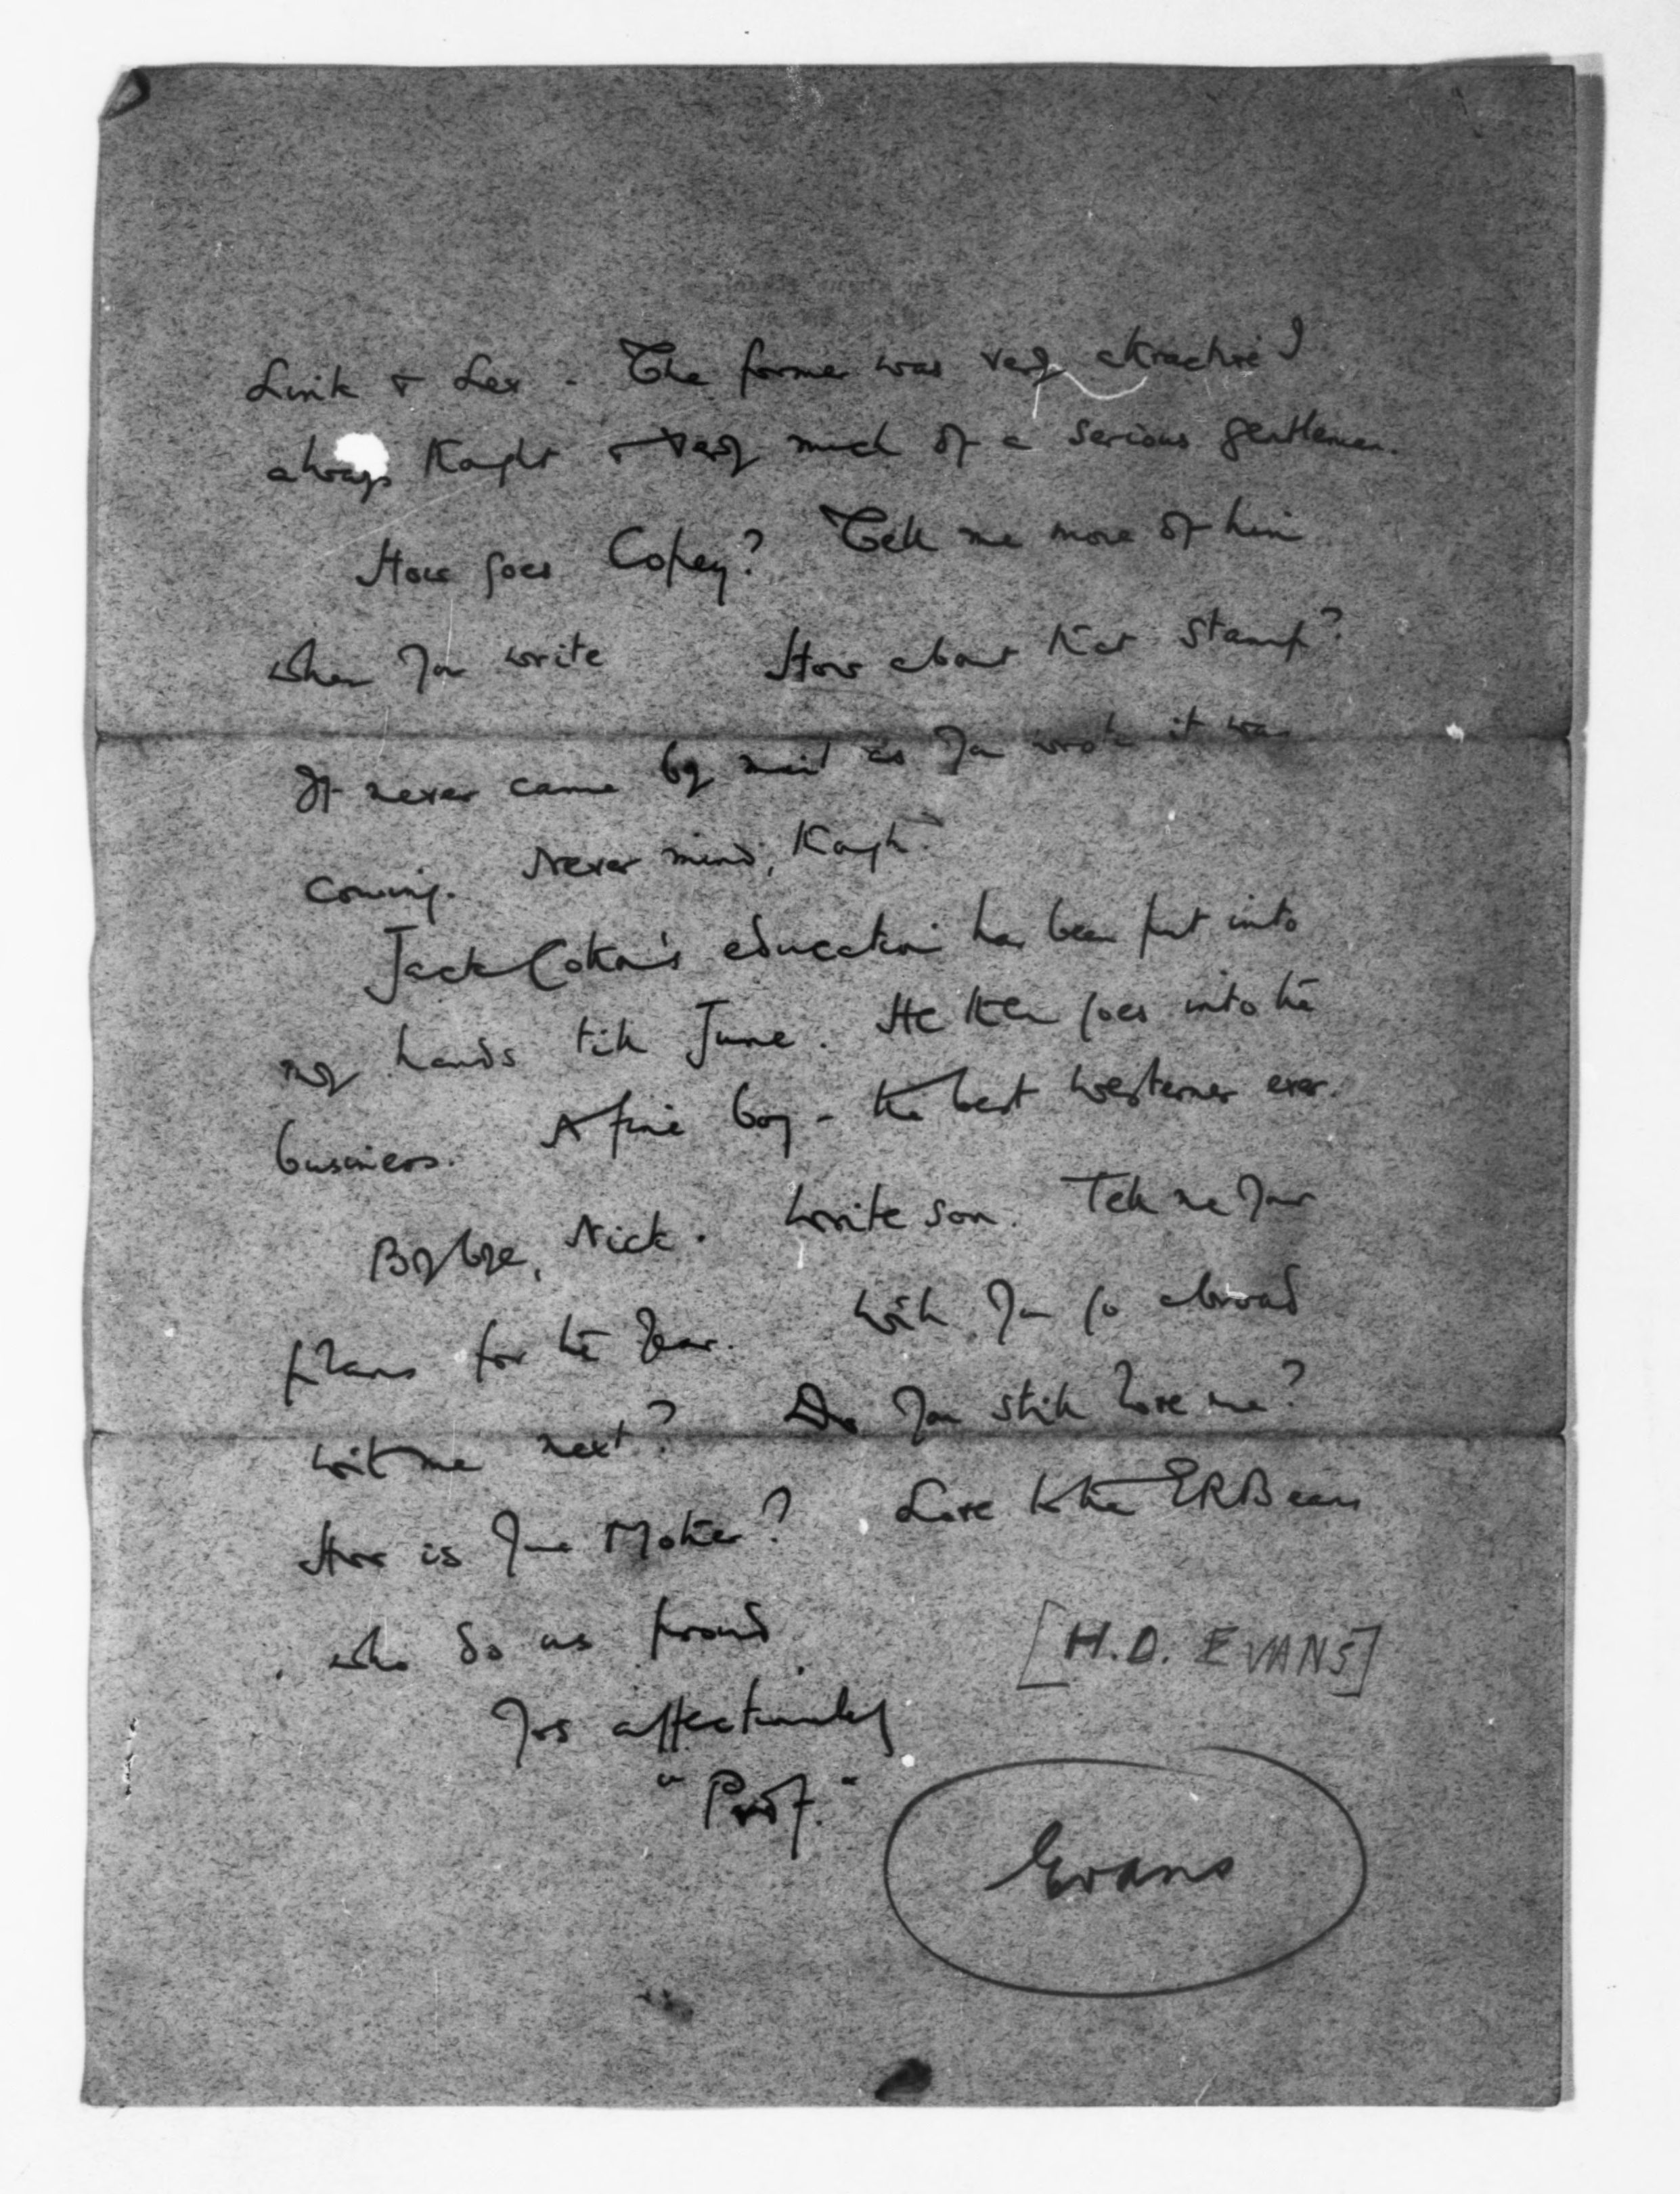 Link & Lex. The former was very attractive I
always thought & very much of a serious gentleman.
How goes Copey? Tell me more of him
when you write How about that stamp?
It never came by mail as you wrote it was
coming. Never mind, though.
Jack Cotton's education has been put into
my hands till June. He then goes into the
business. A fine boy - the best Westerner ever.
Bybye, Nick. Write soon. Tell me your
plans for the year. Will you go abroad
with me next? Do you still love me?
How is your Mother? Love to the
who do us proud
[H.D. EVANS]
Yrs affectionately
"Prof."
Evans